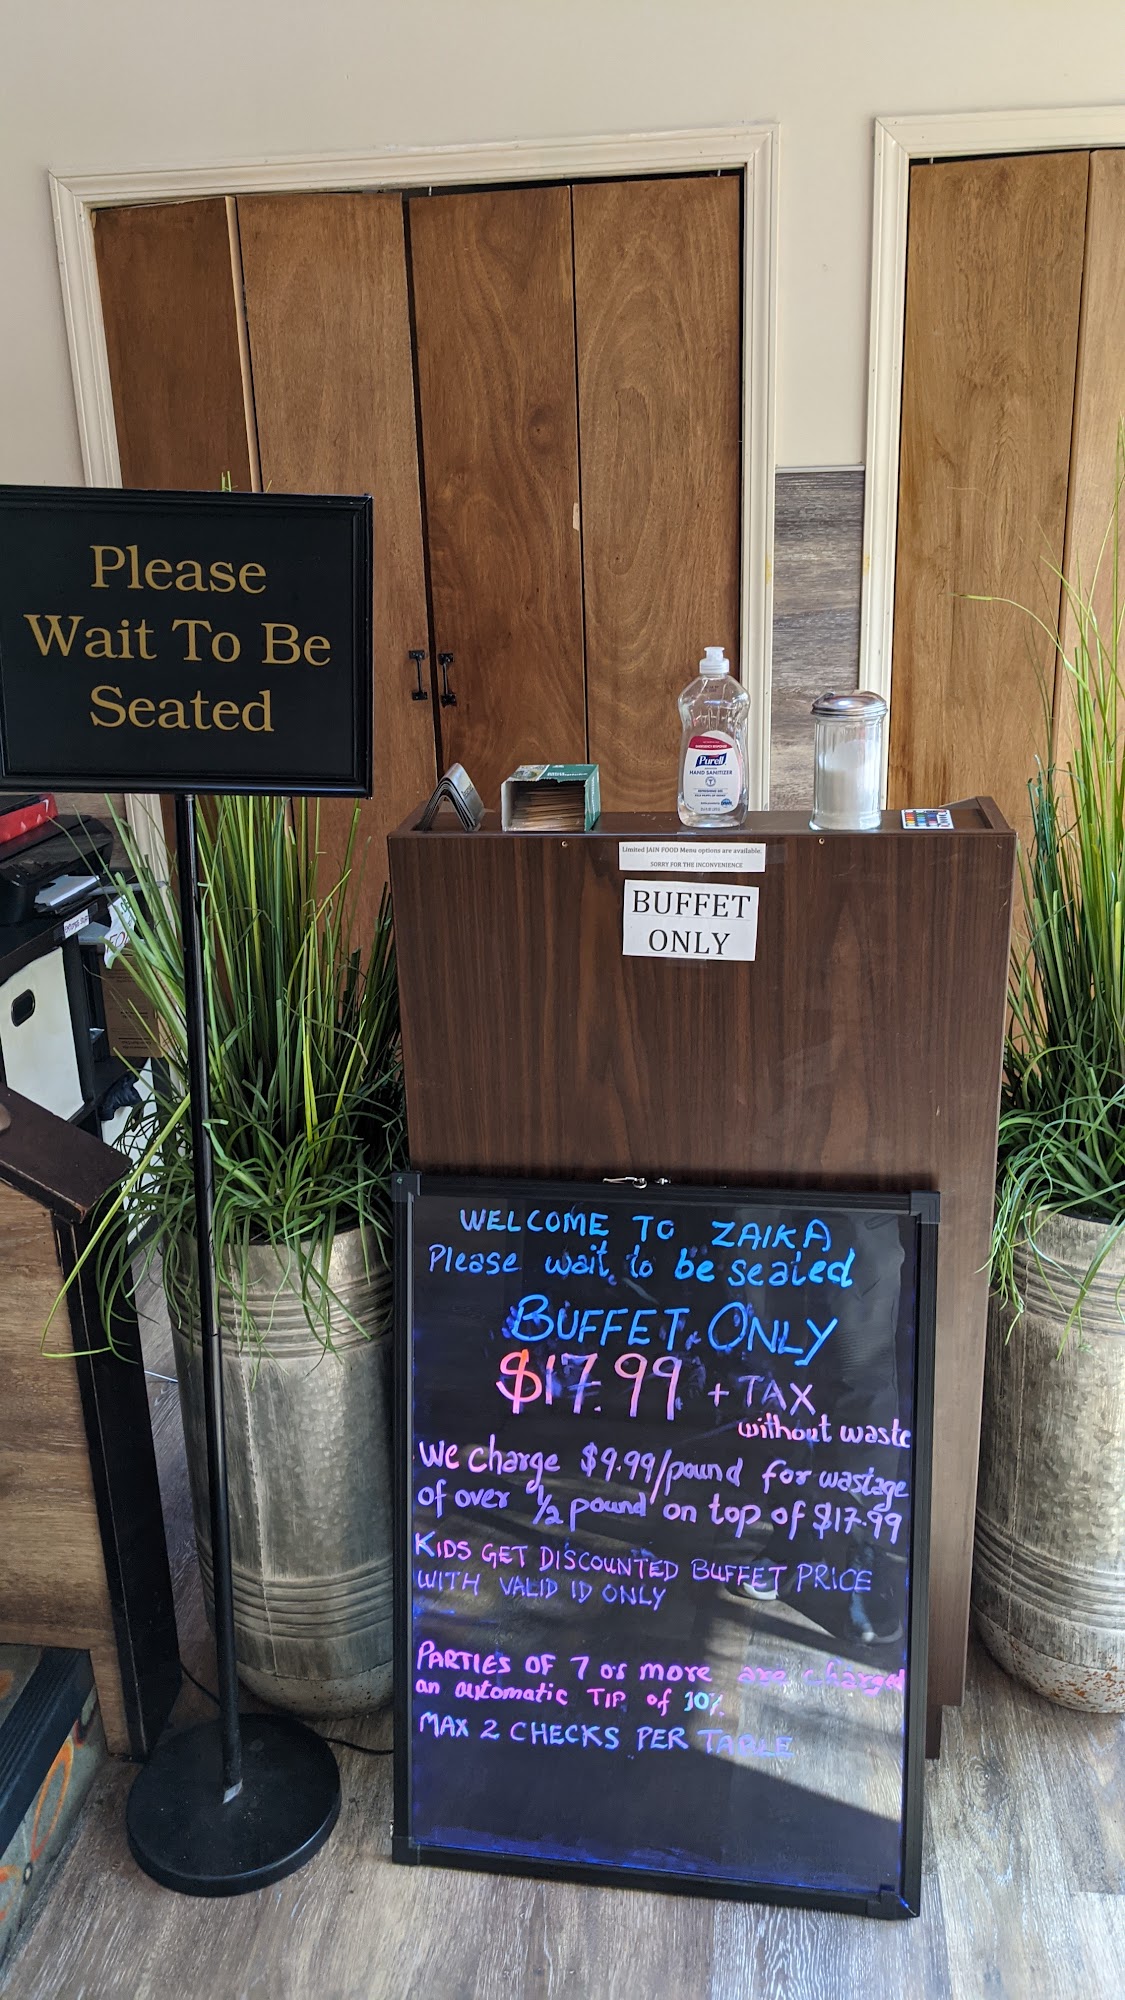 Please
Wait To Be
Seated
Purell
HAND SANITIZER
Limited JAIN FOOD Menu options are available.
SORRY FOR THE INCONVENIENCE
BUFFET
ONLY
WELCOME TO ZAIKA
Please wait to be seated
BUFFET ONLY
$17.99 + TAX
without waste
We charge $9.99/pound for wastage
of over 1/2 pound on top of $17.99
KIDS GET DISCOUNTED BUFFET PRICE
WITH VALID ID ONLY
PARTIES OF 7 or more are charged
an automatic TIP of 10%
MAX 2 CHECKS PER TABLE